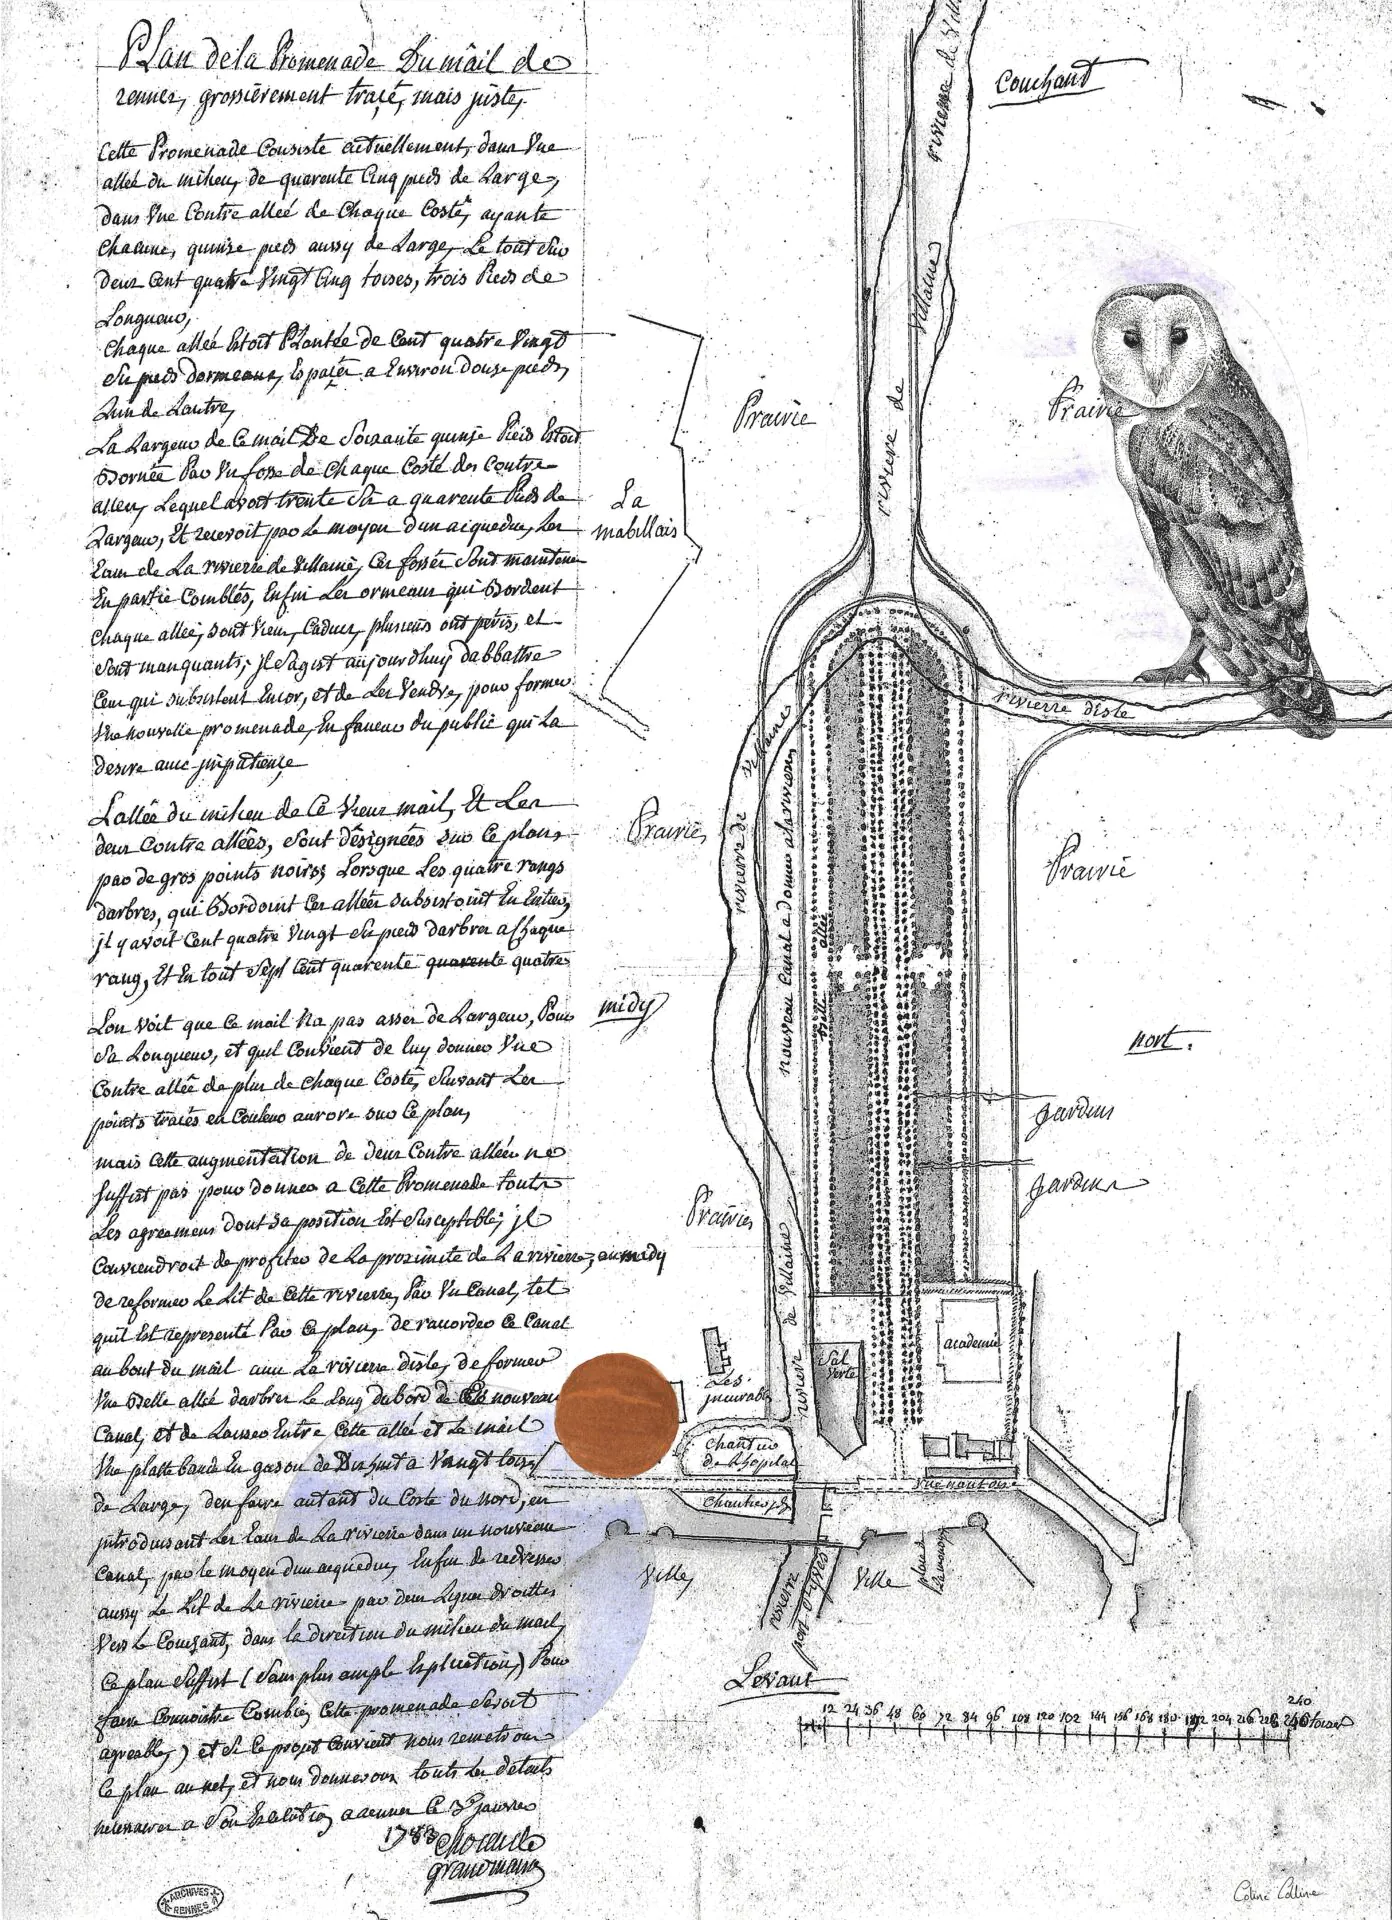 PLan de la Promenade Du mâil de
rennes, grossièrement traçé, mais juste,
Cette Promenade Consiste actuellement, dans Vne
alleé du milieu, de quarente Cinq pieds de Large,
dans Vne Contre alleé de Chaque Costé, ayante
Chacune, quinse pieds aussy de Large, Le tout sur
deux Cent quatre Vingt Cinq toises, trois Pieds de
Longueur,
Chaque alleé Estoit PLantée de Cent quatre Vingt
Six pieds dormeaux, Espacés a Environ douse pieds,
Lun de Lautre,
La Largeur de Ce mail De Soixante quinse Pieds Estoit
Bornée Par Vn fosse de Chaque Costé des Contre
alleés, Lequel avoit trente Six a quarente Pieds de
Largeur, Et recevoit par Le moyen dun acqueduc, Les
Eaux de La rivierre de Villaine, Ces fossés Sont maintenant
En partie Comblés, Enfin Les ormeaux qui Bordent
Chaque allée, sont Vieux, Caducs, plusieurs ont péris, et
Sont manquants, jl Sagist aujourdhuy dabbattre
Ceux qui subsistent Encor, et de Les Vendre, pour former
Vne nouvelle promenade, En faveur du public qui La
desire avec jmpatience
Lallée du milieu de Ce Vieux mail, Et Les
deux Contre allées, Sont désignées sur Ce plan,
par de gros points noirs, Lorsque Les quatre rangs
darbres, qui Bordoint Ces allées subsistoint En Entier,
jl y avoit Cent quatre Vingt Six pieds darbres a Chaque
rang, Et En tout Sept Cent quarente quarente quatre
Lon Voit que Ce mail Na pas assez de Largeur, Pour
Sa Longueur, et quil Convient de luy donner Vne
Contre allée de plus de Chaque Costé, Suivant Les
points tracés en Couleur aurore sur Ce plan,
mais Cette augmentation de deux Contre allées ne
Suffist pas pour donner a Cette Promenade toute
Les agreemens dont Sa position Est Susceptible, jl
Conviendroit de profiter de La proximité de La rivierre, au midy
de reformer Le Lit de Cette rivierre, Par Vn Canal, tel
quil Est representé Par Ce plan, de raccorder Ce Canal
au bout du mail avec La rivierre disle, de former
Vne Belle allée darbres Le Long du bord de Ce nouveau
Canal, et de Laisser Entre Cette allée et Le mail
Vne platte bande En gason de Dixhuit a Vingt toises
de Large, den faire autant du Coste du nord, en
jntroduisant Les Eaux de La rivierre dans un nouveau
Canal, par le moyen dun acqueduc, Enfin de redresser
aussy Le Lit de La rivierre par deux Lignes droittes
Vers Le Couchant, dans la direction du milieu du mail,
Ce plan Suffist (Sans plus ample Explication,) Pour
faire Connoistre Combien Cette promenade Seroit
agreable, ) et Si Ce projet Convient nous remetrons
Ce plan au net, et nous donnerons touts les détails
nécessaires a Son Exécution, a rennes Le 3e janvier
1783
grandmaison
ARCHIVES
RENNES
Couchant
rivierre de Villaine
rivierre de Villaine
Prairie
Prairie
La
mabillais
rivierre disle
rivierre de Villaine
nouveau Canal a donner a la rivierre
Belle allée
Prairies
Prairie
midy
nort.
jardins
jardins
Prairies
rivierre de Villaine
academie
Sal
Verte
Les
jncurables
Chantier
de Lhopital
Chantier
rue nantoise
Ville
rivierre
port St yves
Ville
Levant
12 24 36 48 60 72 84 96 108 120 132 144 156 168 180 192 204 216 228 240 toises
240
Coline Colline